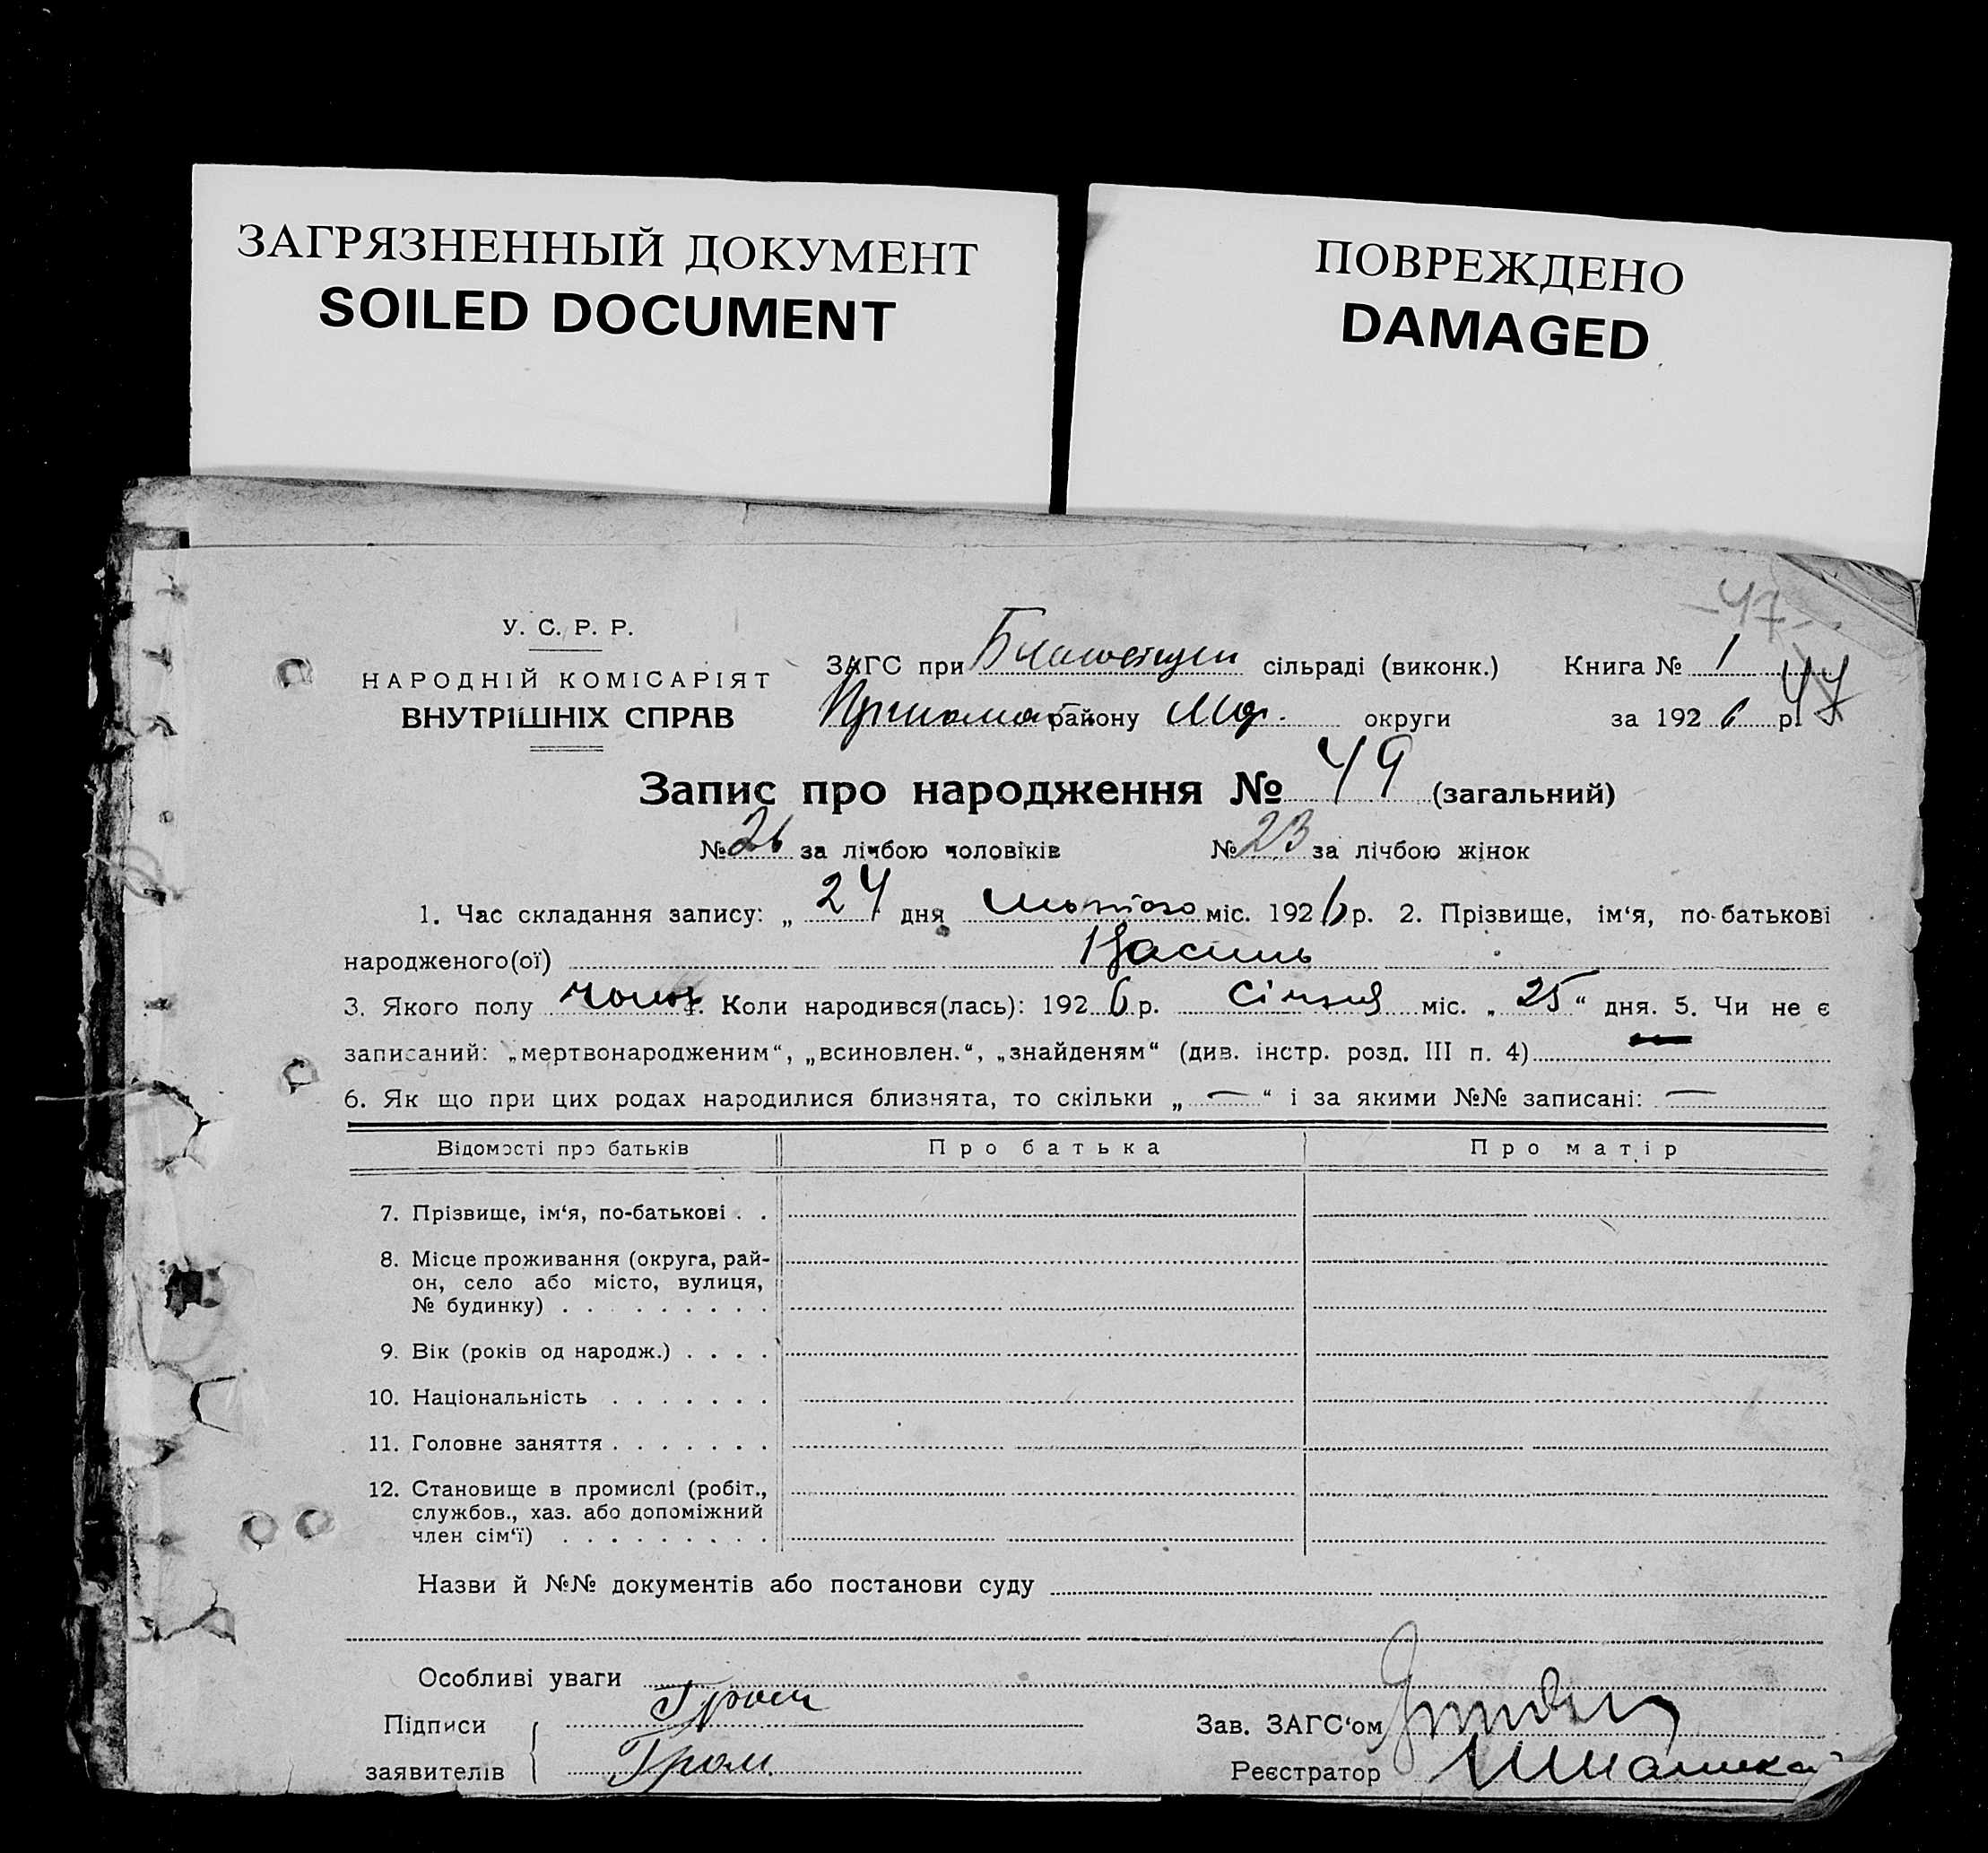 ЗАГРЯЗНЕННЫЙ ДОКУМЕНТ
SOILED DOCUMENT
ПОВРЕЖДЕНО
DAMAGED
-47-
У. С. Р. Р.
НАРОДНІЙ КОМІСАРІЯТ
ВНУТРІШНІХ СПРАВ
ЗАГС при сільраді (виконк.) Книга № 1
району округи за 1926 р. 47
Запис про народження № 49 (загальний)
№ 26 за лічбою чоловіків № 23 за лічбою жінок
1. Час складання запису: „ 24 дня лютого міс. 1926 р. 2. Прізвище, ім‘я, по-батькові
народженого(ої) Василь
3. Якого полу чолов 4. Коли народився(лась): 1926 р. січня міс. „ 25 “ дня. 5. Чи не є
записаний: „мертвонародженим“, „всиновлен.“, „знайденям“ (див. інстр. розд. III п. 4) —
6. Як що при цих родах народилися близнята, то скільки „ — “ і за якими №№ записані: —
Відомості про батьків Про батька Про матір
7. Прізвище, ім‘я, по-батькові . .
8. Місце проживання (округа, рай-
он, село або місто, вулиця,
№ будинку) . . . . . . . . .
9. Вік (років од народж.) . . . .
10. Національність . . . . . . .
11. Головне заняття . . . . . . .
12. Становище в промислі (робіт.,
службов., хаз. або допоміжний
член сім‘ї) . . . . . . . . .
Назви й №№ документів або постанови суду
Особливі уваги
Підписи Гром Зав. ЗАГС‘ом
заявителів Гром Реєстратор